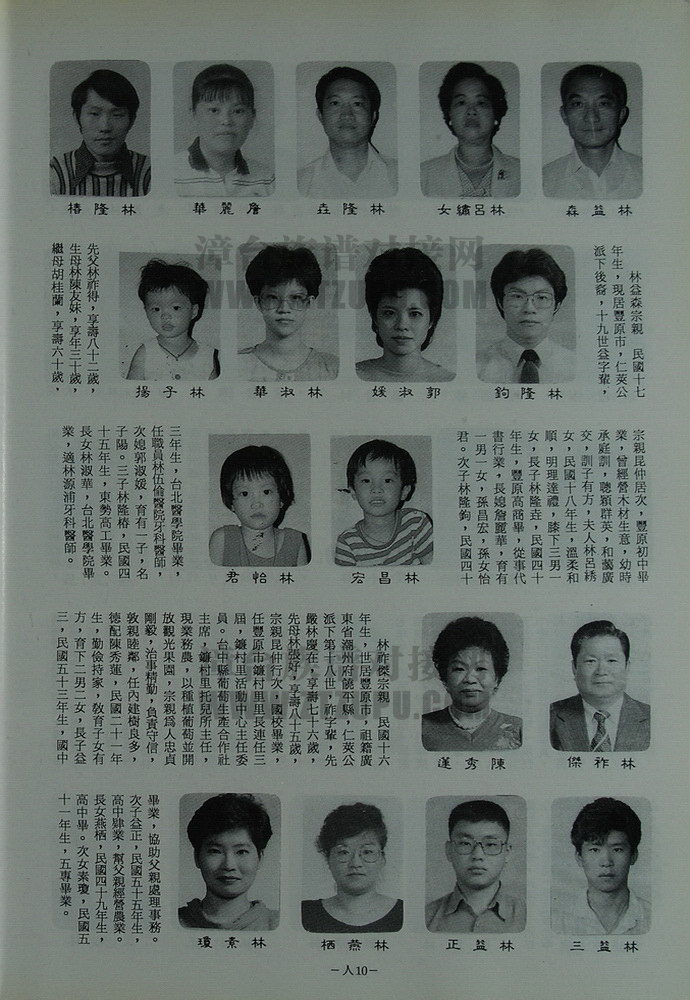 林益森
林呂繡女
林隆垚
詹麗華
林隆椿
林益森宗親　民國十七
年生，現居豐原市，仁萊公
派下後裔，十九世益字輩，
林隆鈞
郭淑媛
林淑華
林子揚
先父林祚得，享壽八十二歲，
生母林陳友妹，享年三十歲，
繼母胡桂蘭，享壽六十歲，
宗親昆仲居次，豐原初中畢
業，曾經營木材生意，幼時
承庭訓，聰穎群英，和藹廣
交，訓子有方，夫人林呂綉
女，民國十八年生，溫柔和
順，明理達禮，膝下三男一
女，長子林隆垚，民國四十
年生，豐原高商畢，從事代
書行業，長媳詹麗華，育有
一男一女，孫昌宏，孫女怡
君。次子林隆鈞，民國四十
林昌宏
林怡君
三年生，台北醫學院畢業，
任職員林伍倫醫院牙科醫師，
次媳郭淑媛，育有一子，名
子陽。三子林隆椿，民國四
十五年生，東勢高工畢業。
長女林淑華，台北醫學院畢
業，適林源浦牙科醫師。
林祚傑
陳秀蓮
林祚傑宗親　民國十六
年生，世居豐原市，祖籍廣
東省潮州府饒平縣，仁萊公
派下第十八世，祚字輩，先
嚴林慶在，享壽七十六歲，
先母林張好，享壽八十五歲，
宗親昆仲行次，國校畢業，
任豐原市鐮村里里長連任三
屆，鐮村里活動中心主任委
員。台中縣葡萄生產合作社
主席，鐮村里托兒所主任，
現業務農，以種植葡萄並開
放觀光果園，宗親為人忠貞
剛毅，治事精勤，負責守信，
敦親睦鄰，任內建樹良多，
德配陳秀蓮，民國二十一年
生，勤儉持家，教育子女有
方，育下二男二女，長子益
三，民國五十三年生，國中
林益三
林益正
林燕栖
林素瓊
畢業，協助父親處理事務。
次子益正，民國五十五年生，
高中肄業，幫父親經營農業。
長女燕栖，民國四十九年生，
高中畢。次女素瓊，民國五
十一年生，五專畢業。
－人10－